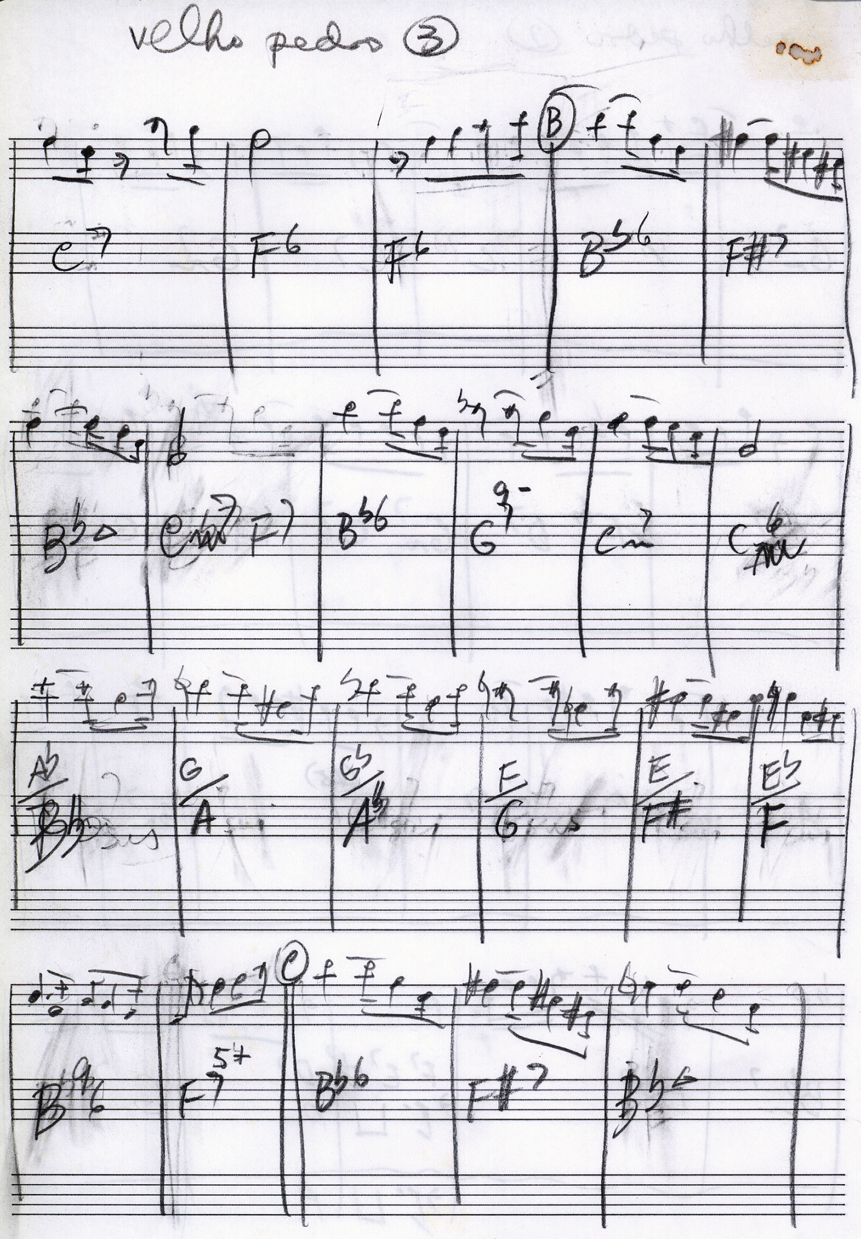 velho pedro ③
B
C7 F6 F6 Bb6 F#7
Bb△ Cm7 F7 Bb6 G7 9- Cm7 C 6
Ab/Bb sus G/A Gb/Ab F/G E/F# Eb/F
C
Bb 9 6 F7 5+ Bb6 F#7 Bb△